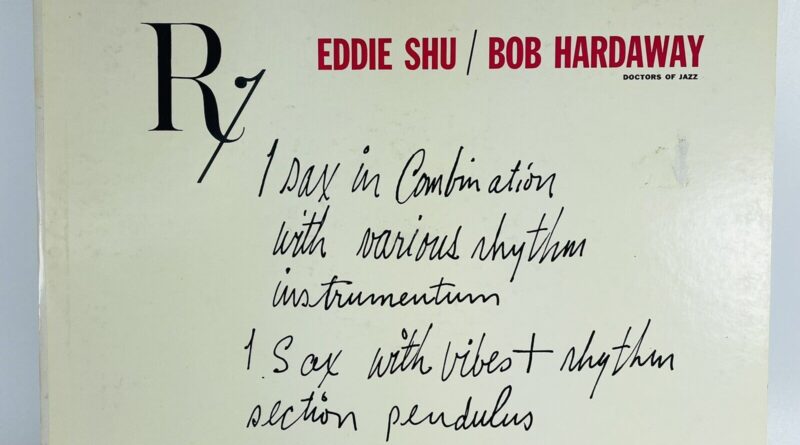 Rx
EDDIE SHU / BOB HARDAWAY
DOCTORS OF JAZZ
1 sax in Combination
with various rhythm
instrumentum
1 Sax with vibes + rhythm
section pendulus